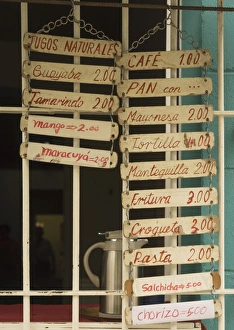 JUGOS NATURALES
Guayaba 2.00
Tamarindo 2.00
mango=2.00
maracuyá=2.00
CAFÉ 1.00
PAN con ...
Mayonesa 2.00
Tortilla
Mantequilla 2.00
Fritura 3.00
Croqueta 3.00
Pasta 2.00
Salchicha=5.00
chorizo=5.00